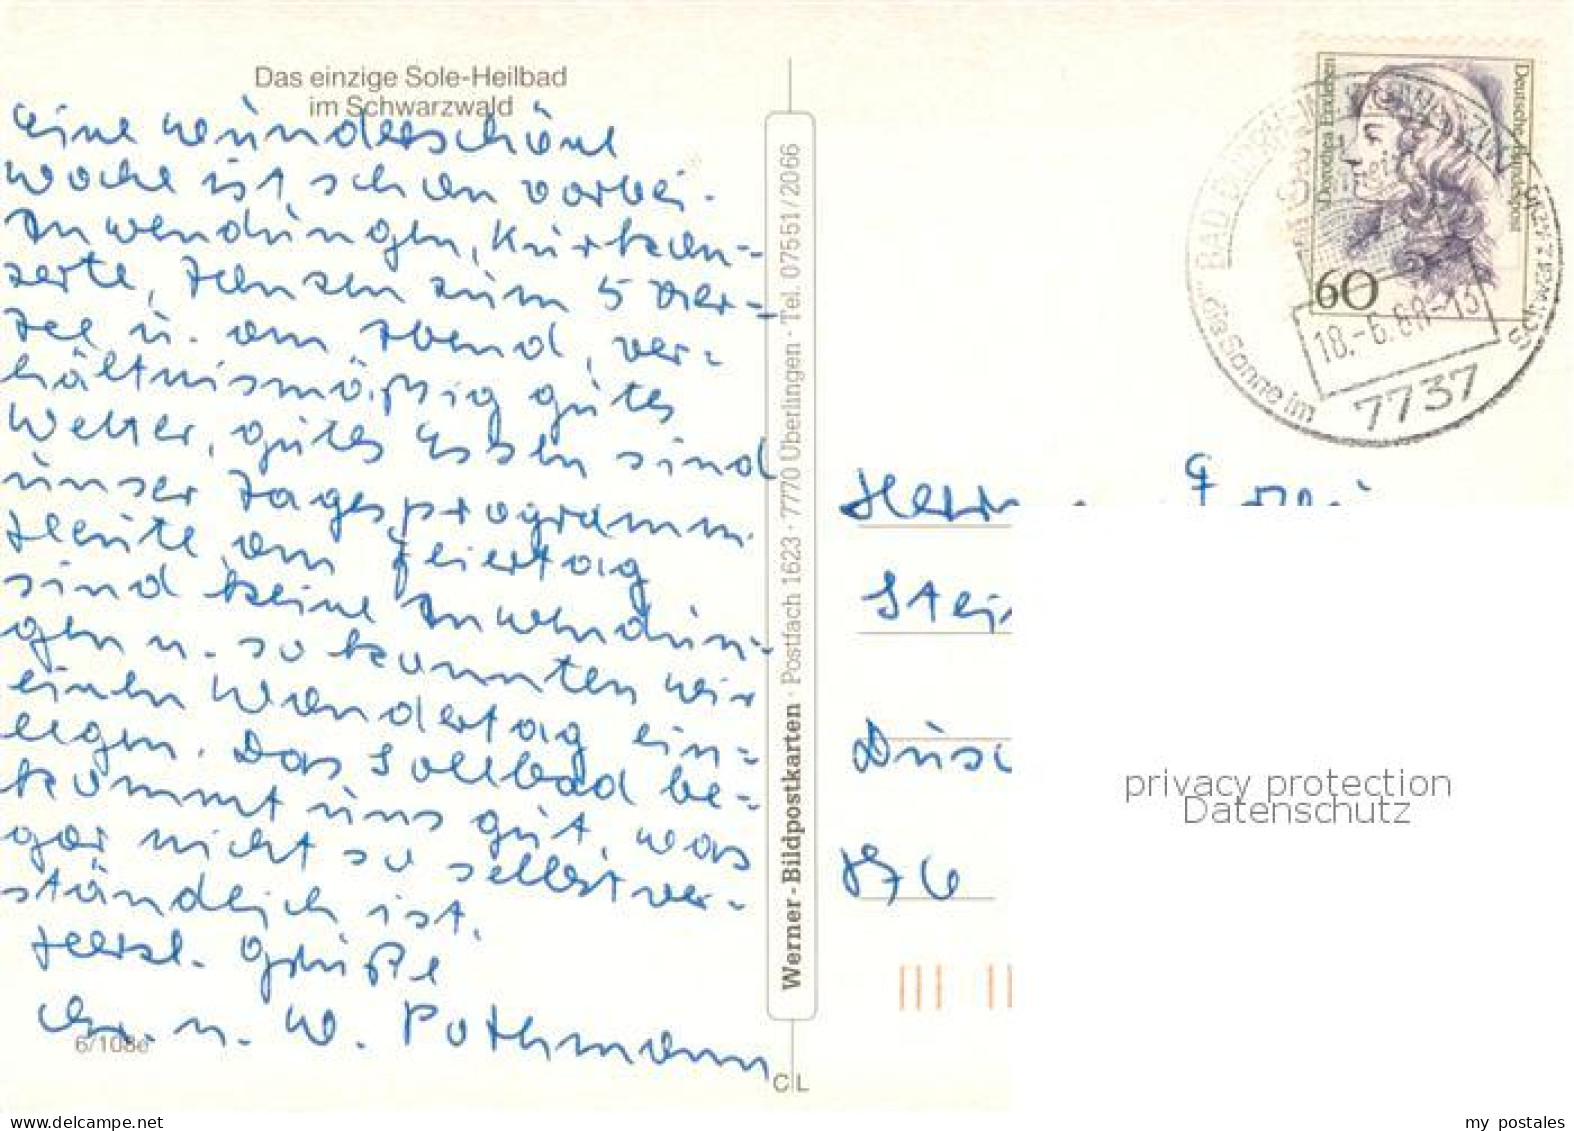 Das einzige Sole-Heilbad
im Schwarzwald
Eine wunderschöne
Woche ist schon vorbei.
Anwendungen, Kurkon-
zerte, Tanzen zum 5 Uhr-
Tee u. am Abend, ver-
hältnismäßig gutes
Wetter, gutes Essen sind
unser Tagesprogramm.
Heute, am Feiertag
sind keine Anwendun-
gen u. so konnten wir
einen Wandertag ein-
legen. Das Solebad be-
kommt uns gut, was
gar nicht so selbstver-
ständlich ist.
Herzl. Grüße
u. W. Pothmann
6/108e
CL
Werner-Bildpostkarten · Postfach 1623 · 7770 Überlingen · Tel. 07551/2066
Dorothea Erxleben
Deutsche Bundespost
60
18.-6.88-13
7737
BAD DÜRRHEIM
die Sonne im
Schwarzwald
Herrn
privacy protection
Datenschutz
delcampe.net
my_postales